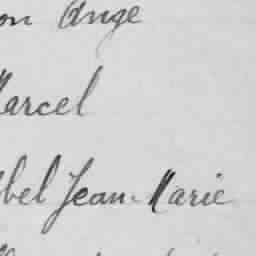 on Ange
Marcel
bel Jean-Marie